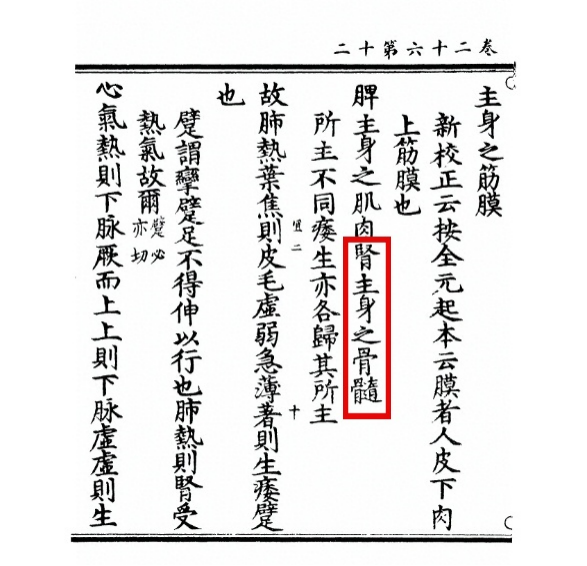 卷二十六第十二
主身之筋膜
新校正云按全元起本云膜者人皮下肉
上筋膜也
脾主身之肌肉腎主身之骨髓
所主不同痿生亦各歸其所主
故肺熱葉焦則皮毛虛弱急薄著則生痿躄
也
躄謂攣躄足不得伸以行也肺熱則腎受
熱氣故爾躄必亦切
心氣熱則下脉厥而上上則下脉虛虛則生